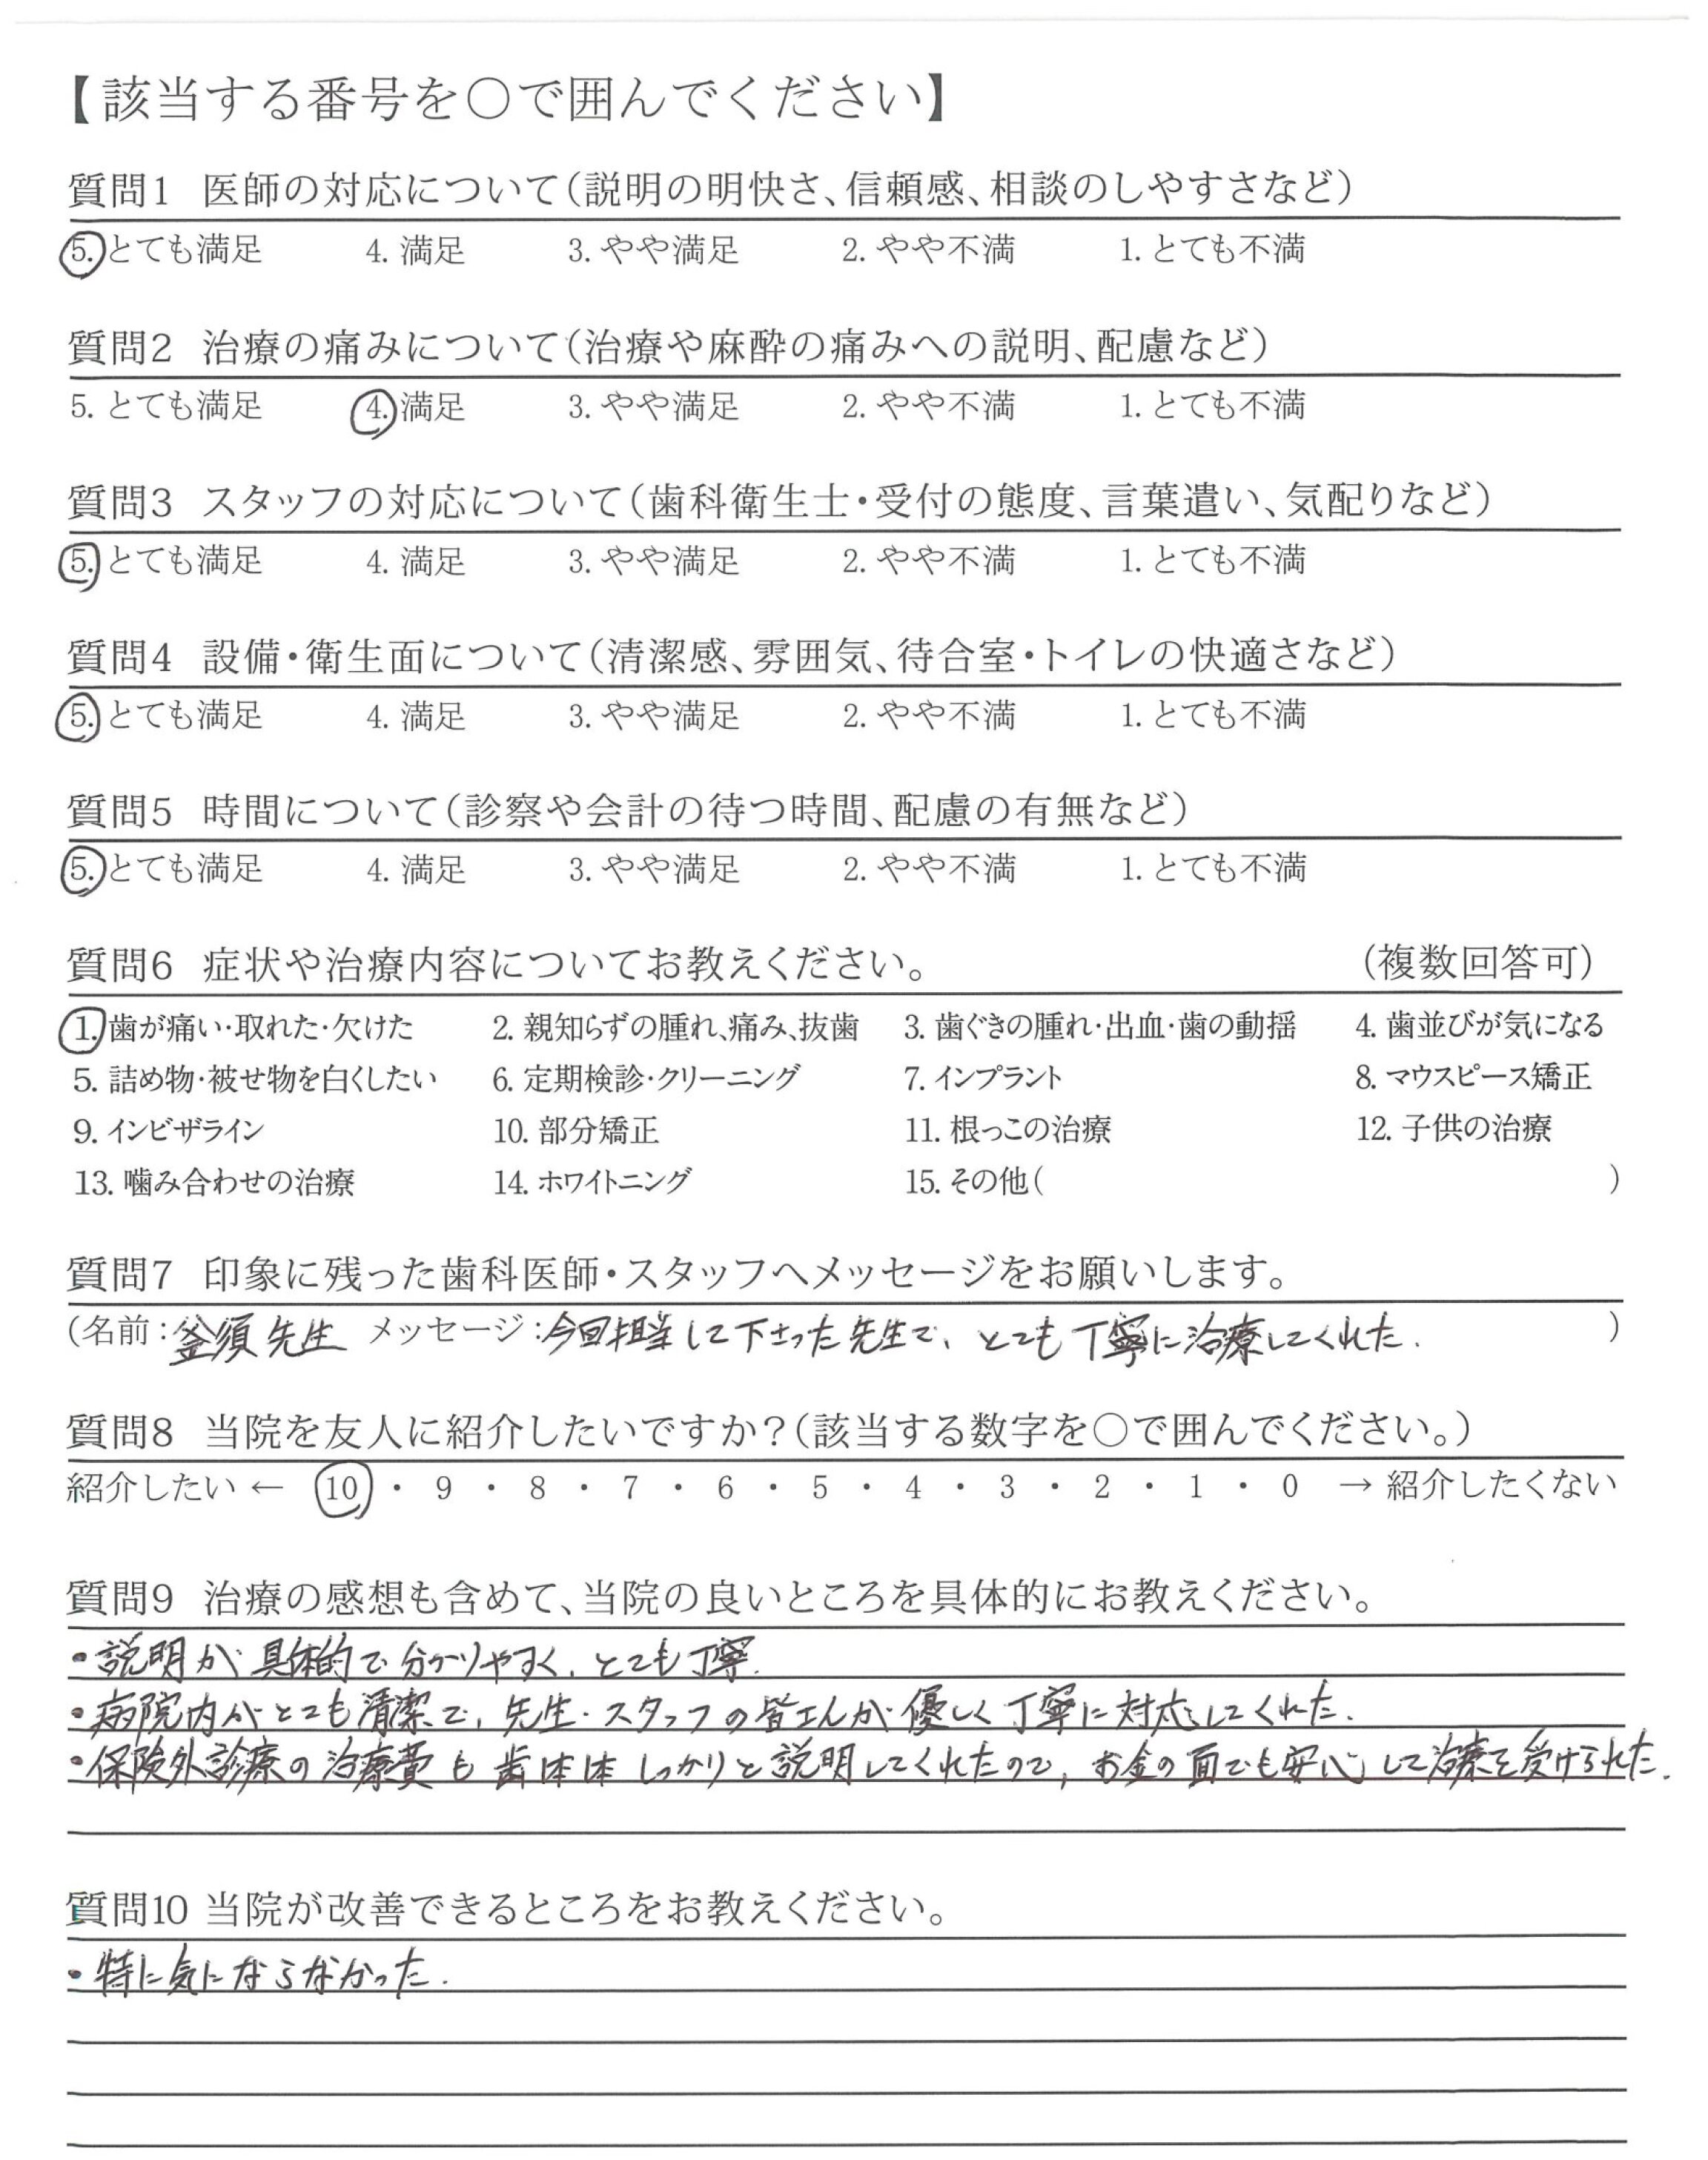 【該当する番号を○で囲んでください】
質問1 医師の対応について(説明の明快さ、信頼感、相談のしやすさなど)
5. とても満足 4. 満足 3. やや満足 2. やや不満 1. とても不満
質問2 治療の痛みについて(治療や麻酔の痛みへの説明、配慮など)
5. とても満足 4. 満足 3. やや満足 2. やや不満 1. とても不満
質問3 スタッフの対応について(歯科衛生士・受付の態度、言葉遣い、気配りなど)
5. とても満足 4. 満足 3. やや満足 2. やや不満 1. とても不満
質問4 設備・衛生面について(清潔感、雰囲気、待合室・トイレの快適さなど)
5. とても満足 4. 満足 3. やや満足 2. やや不満 1. とても不満
質問5 時間について(診察や会計の待つ時間、配慮の有無など)
5. とても満足 4. 満足 3. やや満足 2. やや不満 1. とても不満
質問6 症状や治療内容についてお教えください。 (複数回答可)
1. 歯が痛い・取れた・欠けた 2. 親知らずの腫れ、痛み、抜歯 3. 歯ぐきの腫れ・出血・歯の動揺 4. 歯並びが気になる
5. 詰め物・被せ物を白くしたい 6. 定期検診・クリーニング 7. インプラント 8. マウスピース矯正
9. インビザライン 10. 部分矯正 11. 根っこの治療 12. 子供の治療
13. 噛み合わせの治療 14. ホワイトニング 15. その他( )
質問7 印象に残った歯科医師・スタッフへメッセージをお願いします。
(名前:釜須先生 メッセージ:今回担当して下さった先生で、とても丁寧に治療してくれた. )
質問8 当院を友人に紹介したいですか?(該当する数字を○で囲んでください。)
紹介したい ← 10 ・ 9 ・ 8 ・ 7 ・ 6 ・ 5 ・ 4 ・ 3 ・ 2 ・ 1 ・ 0 → 紹介したくない
質問9 治療の感想も含めて、当院の良いところを具体的にお教えください。
・説明が具体的で分かりやすく、とても丁寧.
・病院内がとても清潔で、先生・スタッフの皆さんが優しく丁寧に対応してくれた.
・保険外診療の治療費も しっかりと説明してくれたので、お金の面でも安心して治療を受けられた.
質問10 当院が改善できるところをお教えください。
・特に気にならなかった.